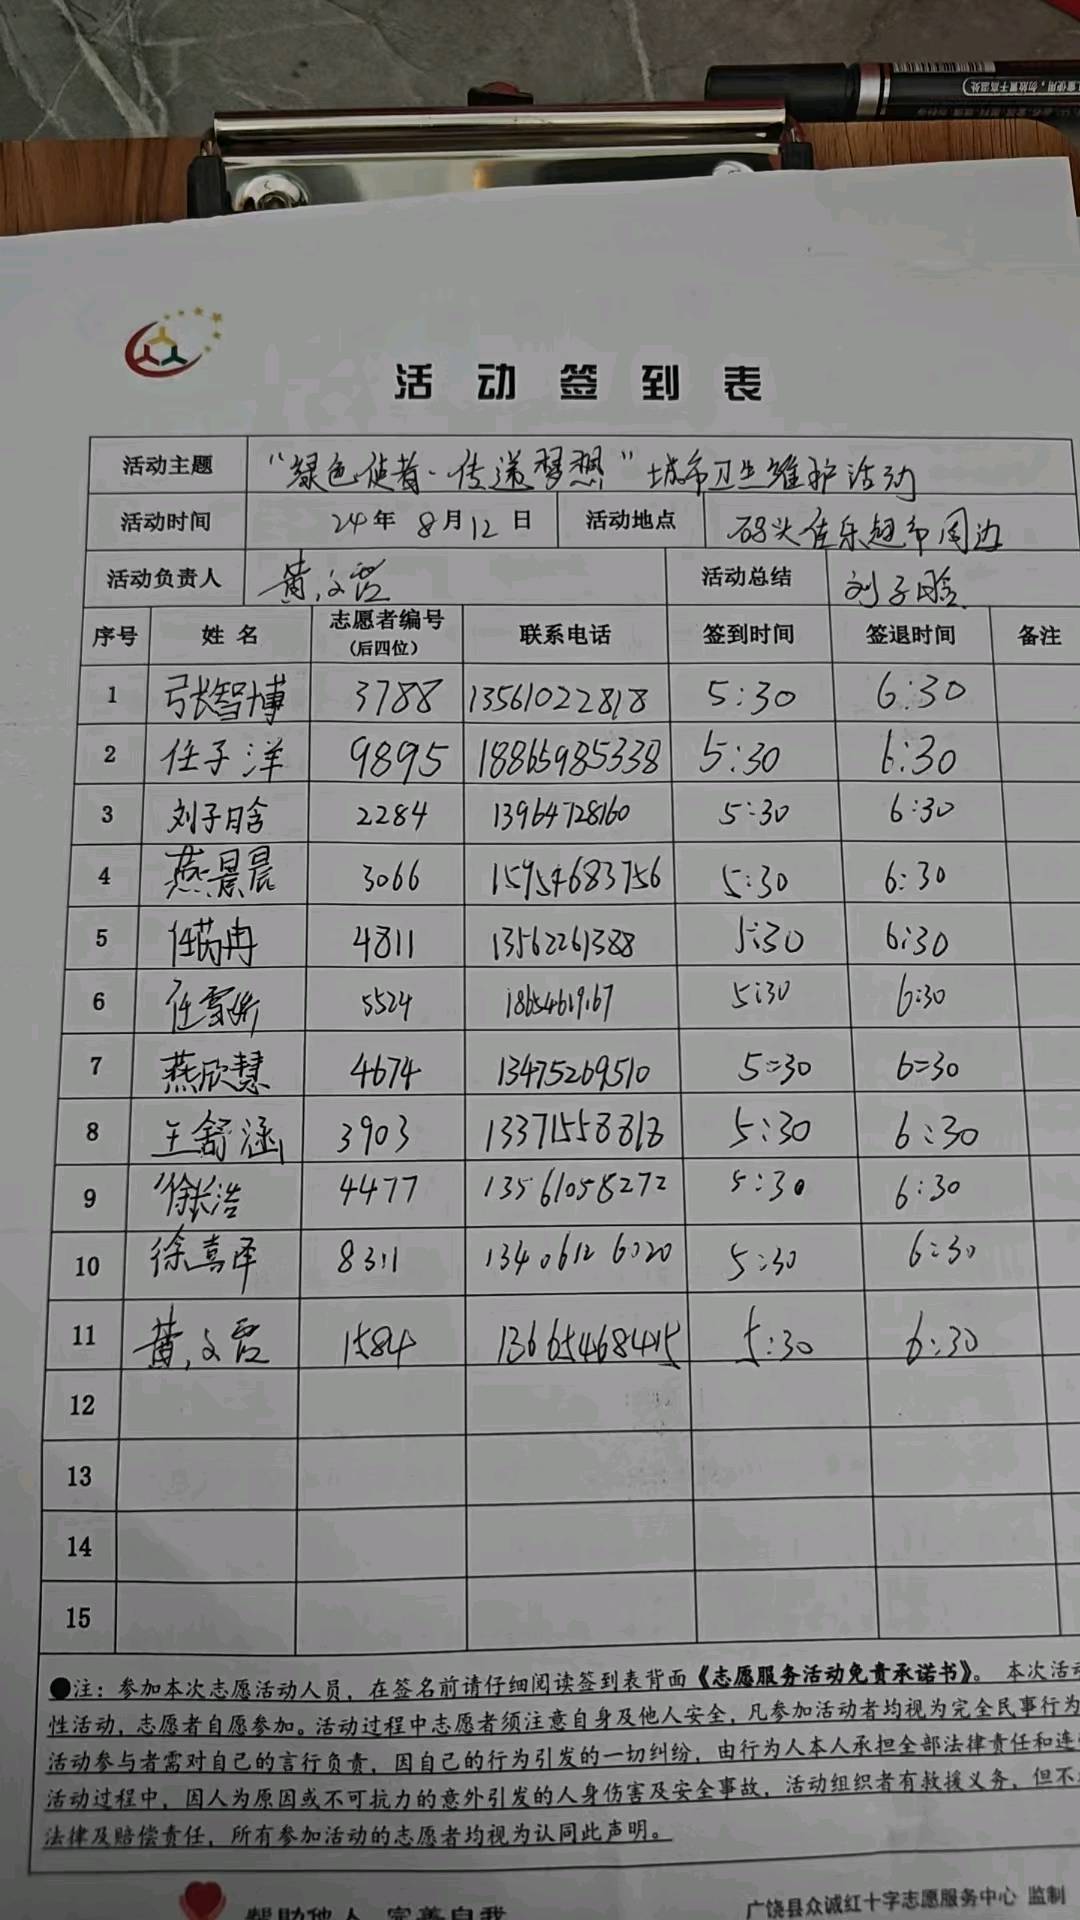 活动签到表
活动主题 “绿色使者·传递梦想”城市卫生维护活动
活动时间 24年 8月12日 活动地点 码头佳乐超市周边
活动负责人 黄文霞 活动总结 刘子晗
序号 姓名 志愿者编号(后四位) 联系电话 签到时间 签退时间 备注
1 张智博 3788 13561022818 5:30 6:30
2 任子洋 9895 18865985338 5:30 6:30
3 刘子晗 2284 13964728160 5:30 6:30
4 燕景晨 3066 15954683756 5:30 6:30
5 任芮冉 4811 13562261388 5:30 6:30
6 任雪娇 5524 5:30 6:30
7 燕欣慧 4674 13475269510 5=30 6=30
8 王舒涵 3903 13371558818 5:30 6:30
9 徐长浩 4477 13561058272 5:30 6:30
10 徐熹泽 8311 13406126020 5:30 6:30
11 黄文霞 1584 13665468415 5:30 6:30
12
13
14
15
●注：参加本次志愿活动人员，在签名前请仔细阅读签到表背面《志愿服务活动免责承诺书》。 本次活动
性活动，志愿者自愿参加。活动过程中志愿者须注意自身及他人安全，凡参加活动者均视为完全民事行为
活动参与者需对自己的言行负责，因自己的行为引发的一切纠纷，由行为人本人承担全部法律责任和连
活动过程中，因人为原因或不可抗力的意外引发的人身伤害及安全事故，活动组织者有救援义务，但不
法律及赔偿责任，所有参加活动的志愿者均视为认同此声明。
帮助他人 完善自我
广饶县众诚红十字志愿服务中心 监制